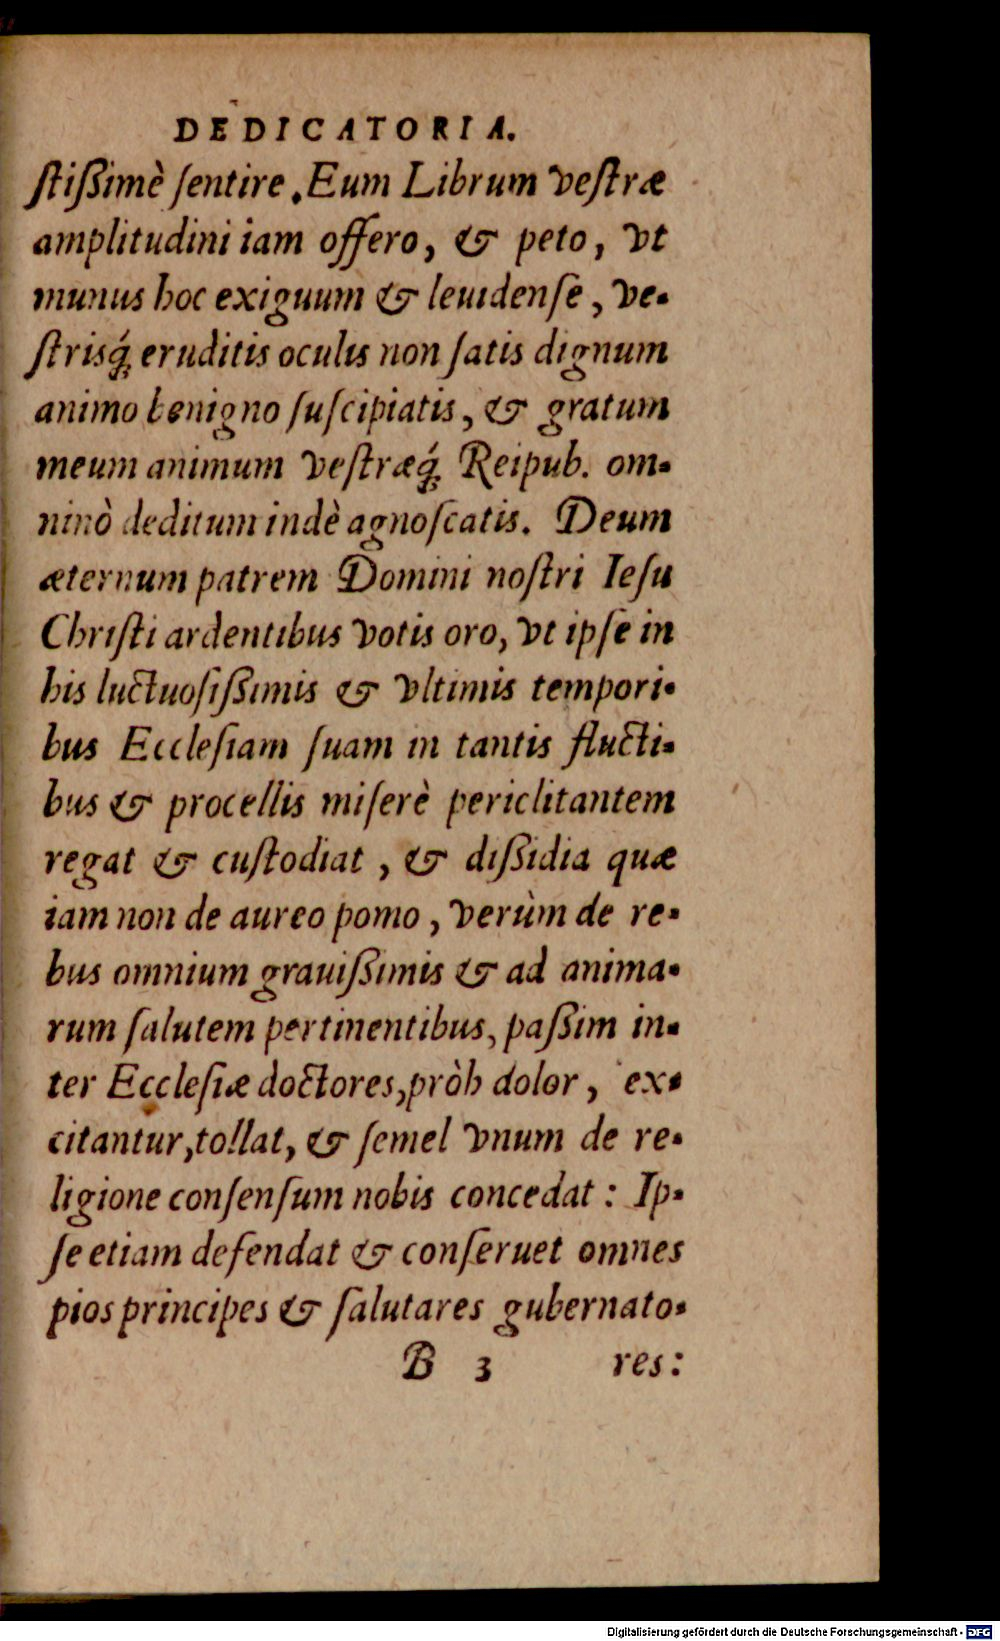 DEDICATORIA.
ſtißimè ſentire. Eum Librum veſtræ
amplitudini iam offero, & peto, vt
munus hoc exiguum & leuidenſe, ve-
ſtrisq́; eruditis oculis non ſatis dignum
animo benigno ſuſcipiatis, & gratum
meum animum veſtræq́; Reipub. om-
ninò deditum indè agnoſcatis. Deum
æternum patrem Domini noſtri Ieſu
Chriſti ardentibus votis oro, vt ipſe in
his luctuoſißimis & vltimis tempori-
bus Eccleſiam ſuam in tantis fluctı-
bus & procellis miſerè periclitantem
regat & cuſtodiat, & dißidia quæ
iam non de aureo pomo, verùm de re-
bus omnium grauißimis & ad anima-
rum ſalutem pertinentibus, paßim in-
ter Eccleſiæ doctores, pròh dolor, ex-
citantur, tollat, & ſemel vnum de re-
ligione conſenſum nobis concedat: Ip-
ſe etiam defendat & conſeruet omnes
pios principes & ſalutares gubernato-
B 3 res:
Digitalisierung gefördert durch die Deutsche Forschungsgemeinschaft - DFG